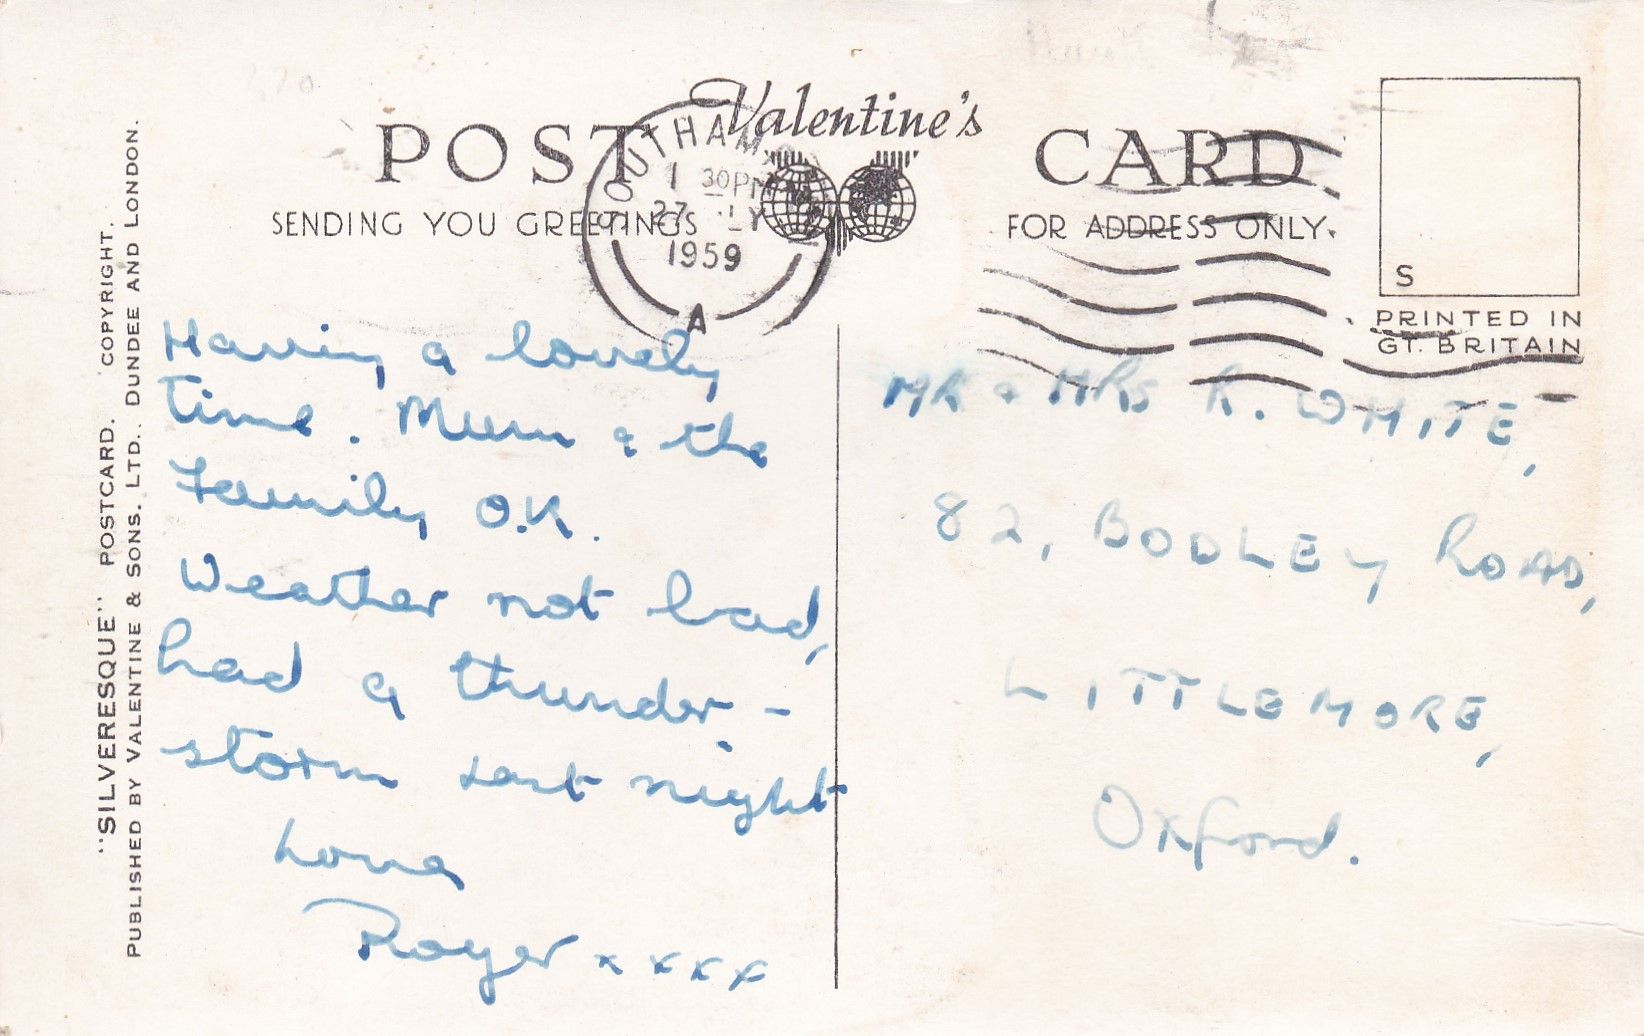 Valentine's
POST CARD
SENDING YOU GREETINGS
FOR ADDRESS ONLY.
1 30 PM
27
1959
A
S
PRINTED IN
GT. BRITAIN
"SILVERESQUE" POSTCARD. COPYRIGHT.
PUBLISHED BY VALENTINE & SONS, LTD., DUNDEE AND LONDON.
Having a lovely
time. Mum & the
Family O.K.
Weather not bad,
had a thunder-
storm last night
Love
Roger x x x x
MR & MRS R. WHITE,
82, BODLEY ROAD,
LITTLEMORE,
Oxford.